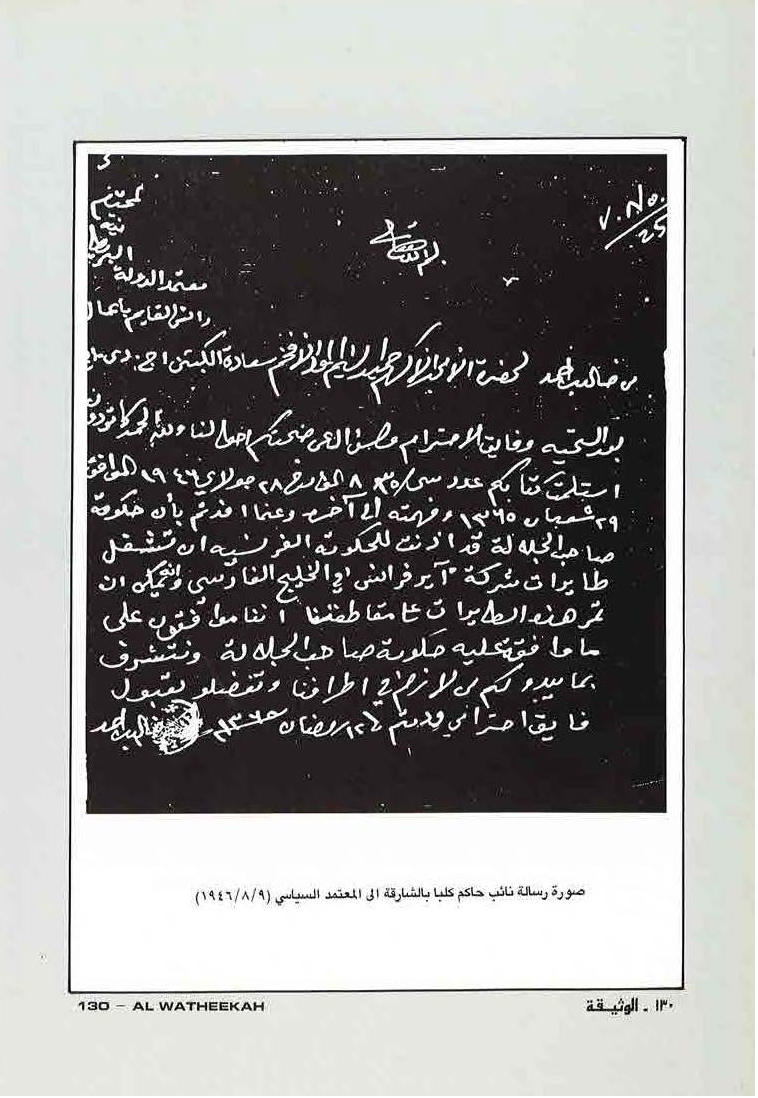 المحترم
V. No.
25
بسم الله تعالى
البريطانية
معتمد الدولة
والقايم بأعمال
من خالد بن احمد لحضرة الامجد الاكرم حميد الشيم الافخم سعادة الكبتن
بعد التحية وفايق الاحترام والسؤال عن صحتكم احوالنا ولله الحمد كما تودون
استلمت كتابكم عدد سى/٨٣٥ المورخ ٢٨ جولاي ١٩٤٦ الموافق
٢٩ شعبان ١٣٦٥ وفهمته الى آخره وعما افدتم بأن حكومة
صاحب الجلالة قد اذنت للحكومة الفرنسيه ان تشغل
طايرات شركة آير فرانس في الخليج الفارسي وانه يمكن ان
تمر هذه الطايرات على مقاطعتنا اننا موافقون على
ما وافقة عليه حكومة صاحب الجلالة ونتشرف
بما يبدو لكم من لازم في اطرافنا وتفضلو بقبول
فايق احترامي ودمتم ١٢ رمضان ١٣٦٥ خالد بن احمد
صورة رسالة نائب حاكم كلبا بالشارقة الى المعتمد السياسي (١٩٤٦/٨/٩)
130 – AL WATHEEKAH
١٣٠ ـ الوثيـقة